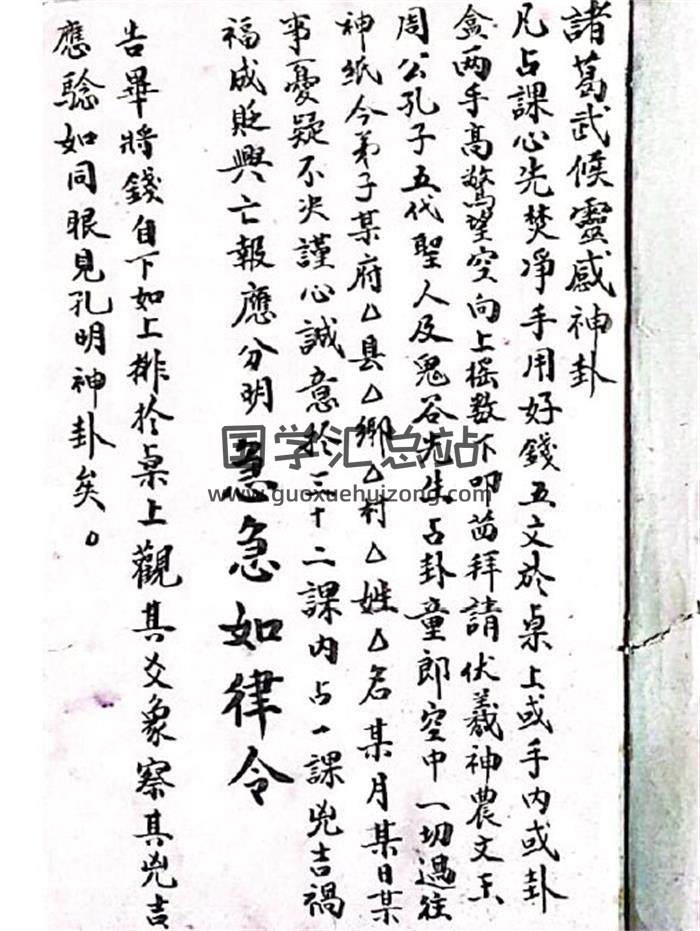 諸葛武候靈感神卦
凡占課心先焚净手用好錢五文於桌上或手内或卦
盒两手高驚望空向上摇数下叩齒拜請伏羲神農文王
周公孔子五代聖人及鬼谷先生占卦童郎空中一切過往
神紙今弟子某府△县△鄉△村△姓△名某月某日某
事憂疑不决謹心誠意於三十二課内占一課兇吉禍
福成貶興亡報應分明急急如律令
告畢將錢自下如上排於桌上觀其爻象察其兇吉
應驗如同眼見孔明神卦矣。
国学汇总站
www.guoxuehuizong.com